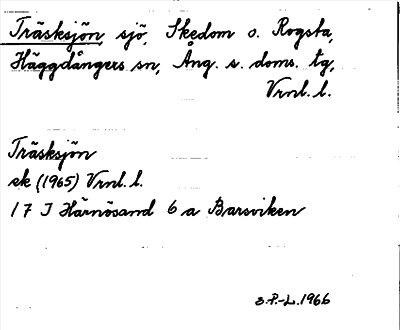 Träsksjön, sjö, Skedom o. Rogsta,
Häggdångers sn, Ång. s. doms. tg,
Vrnl. l.
Träsksjön
ek (1965) Vrnl. l.
17 J Härnösand 6 a Barsviken
B.P.-L. 1966